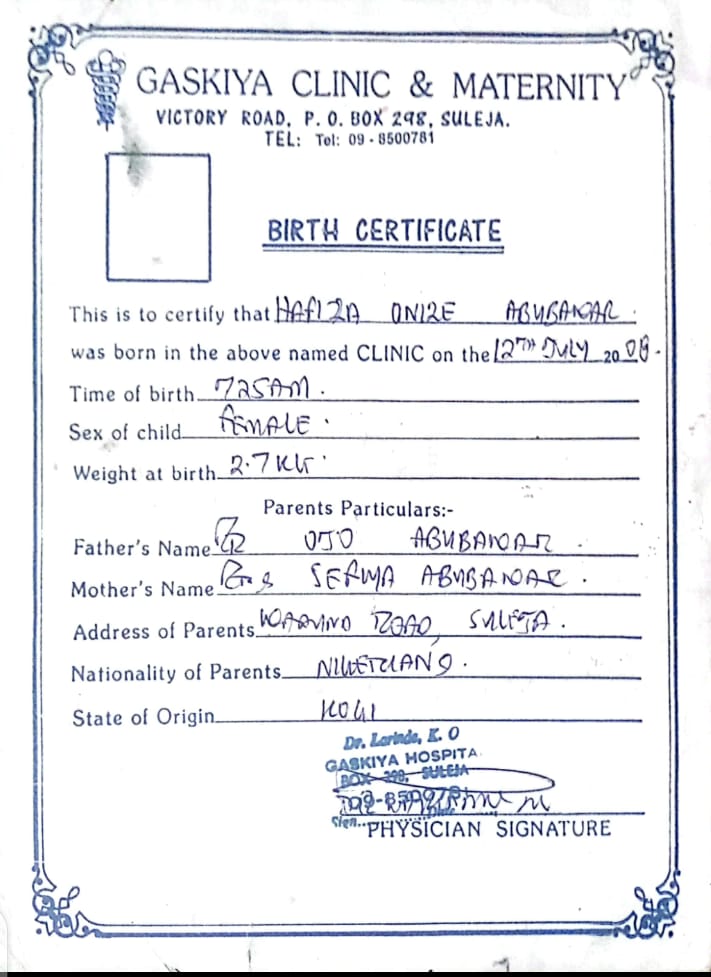 GASKIYA CLINIC & MATERNITY
VICTORY ROAD, P. O. BOX 298, SULEJA.
TEL: Tel: 09 - 8500781
BIRTH CERTIFICATE
This is to certify that HAFIZA ONIZE ABUBAKAR.
was born in the above named CLINIC on the 12TH JULY 2008.
Time of birth 725AM.
Sex of child FEMALE.
Weight at birth 2.7KG.
Parents Particulars:-
Father's Name OJO ABUBAKAR.
Mother's Name ABUBAKAR.
Address of Parents ROAD, SULEJA.
Nationality of Parents NIGERIANS.
State of Origin KOGI
Dr. K. O
GASKIYA HOSPITA
BOX 298, SULEJA
Sign..
PHYSICIAN SIGNATURE